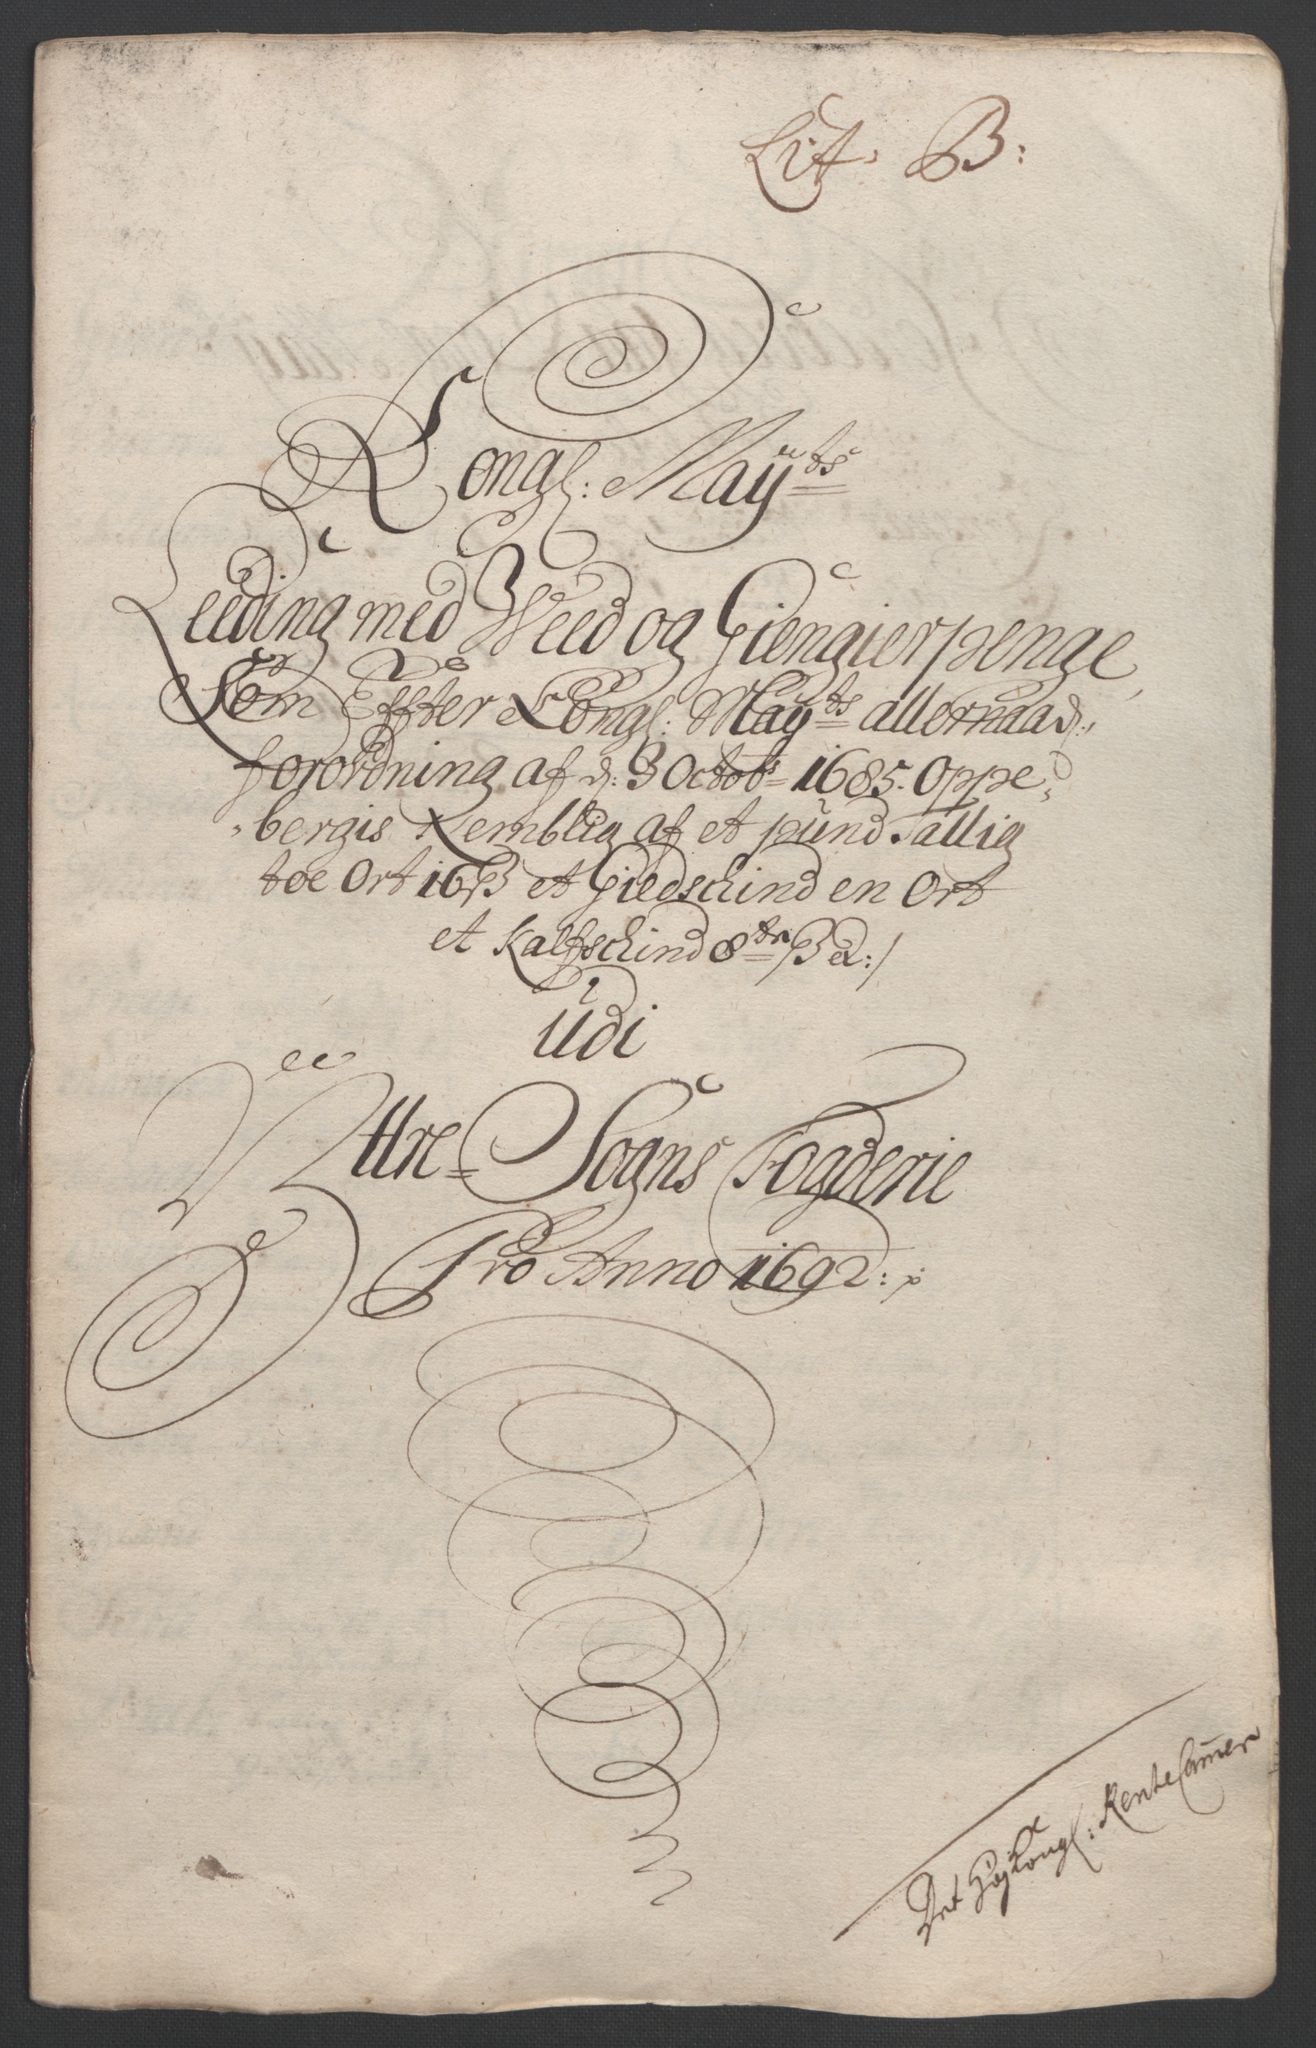 Lit. B:
Kongl: Maÿts
Leeding med Weed og Giengierpenge,
Som Effter Kongl: Maÿts allernaad:
forordning af d: 3 Octobr 1685. Oppe„
„bergis Nemblig af et pund Tallig
toe Ort 16 β et Giedschind en Ort
et Kalfschind 8tn β d:/
Udi
Ittre= Sogns Fogderie
Pro Anno 1692:
Det Höjkongl: Rente Camer